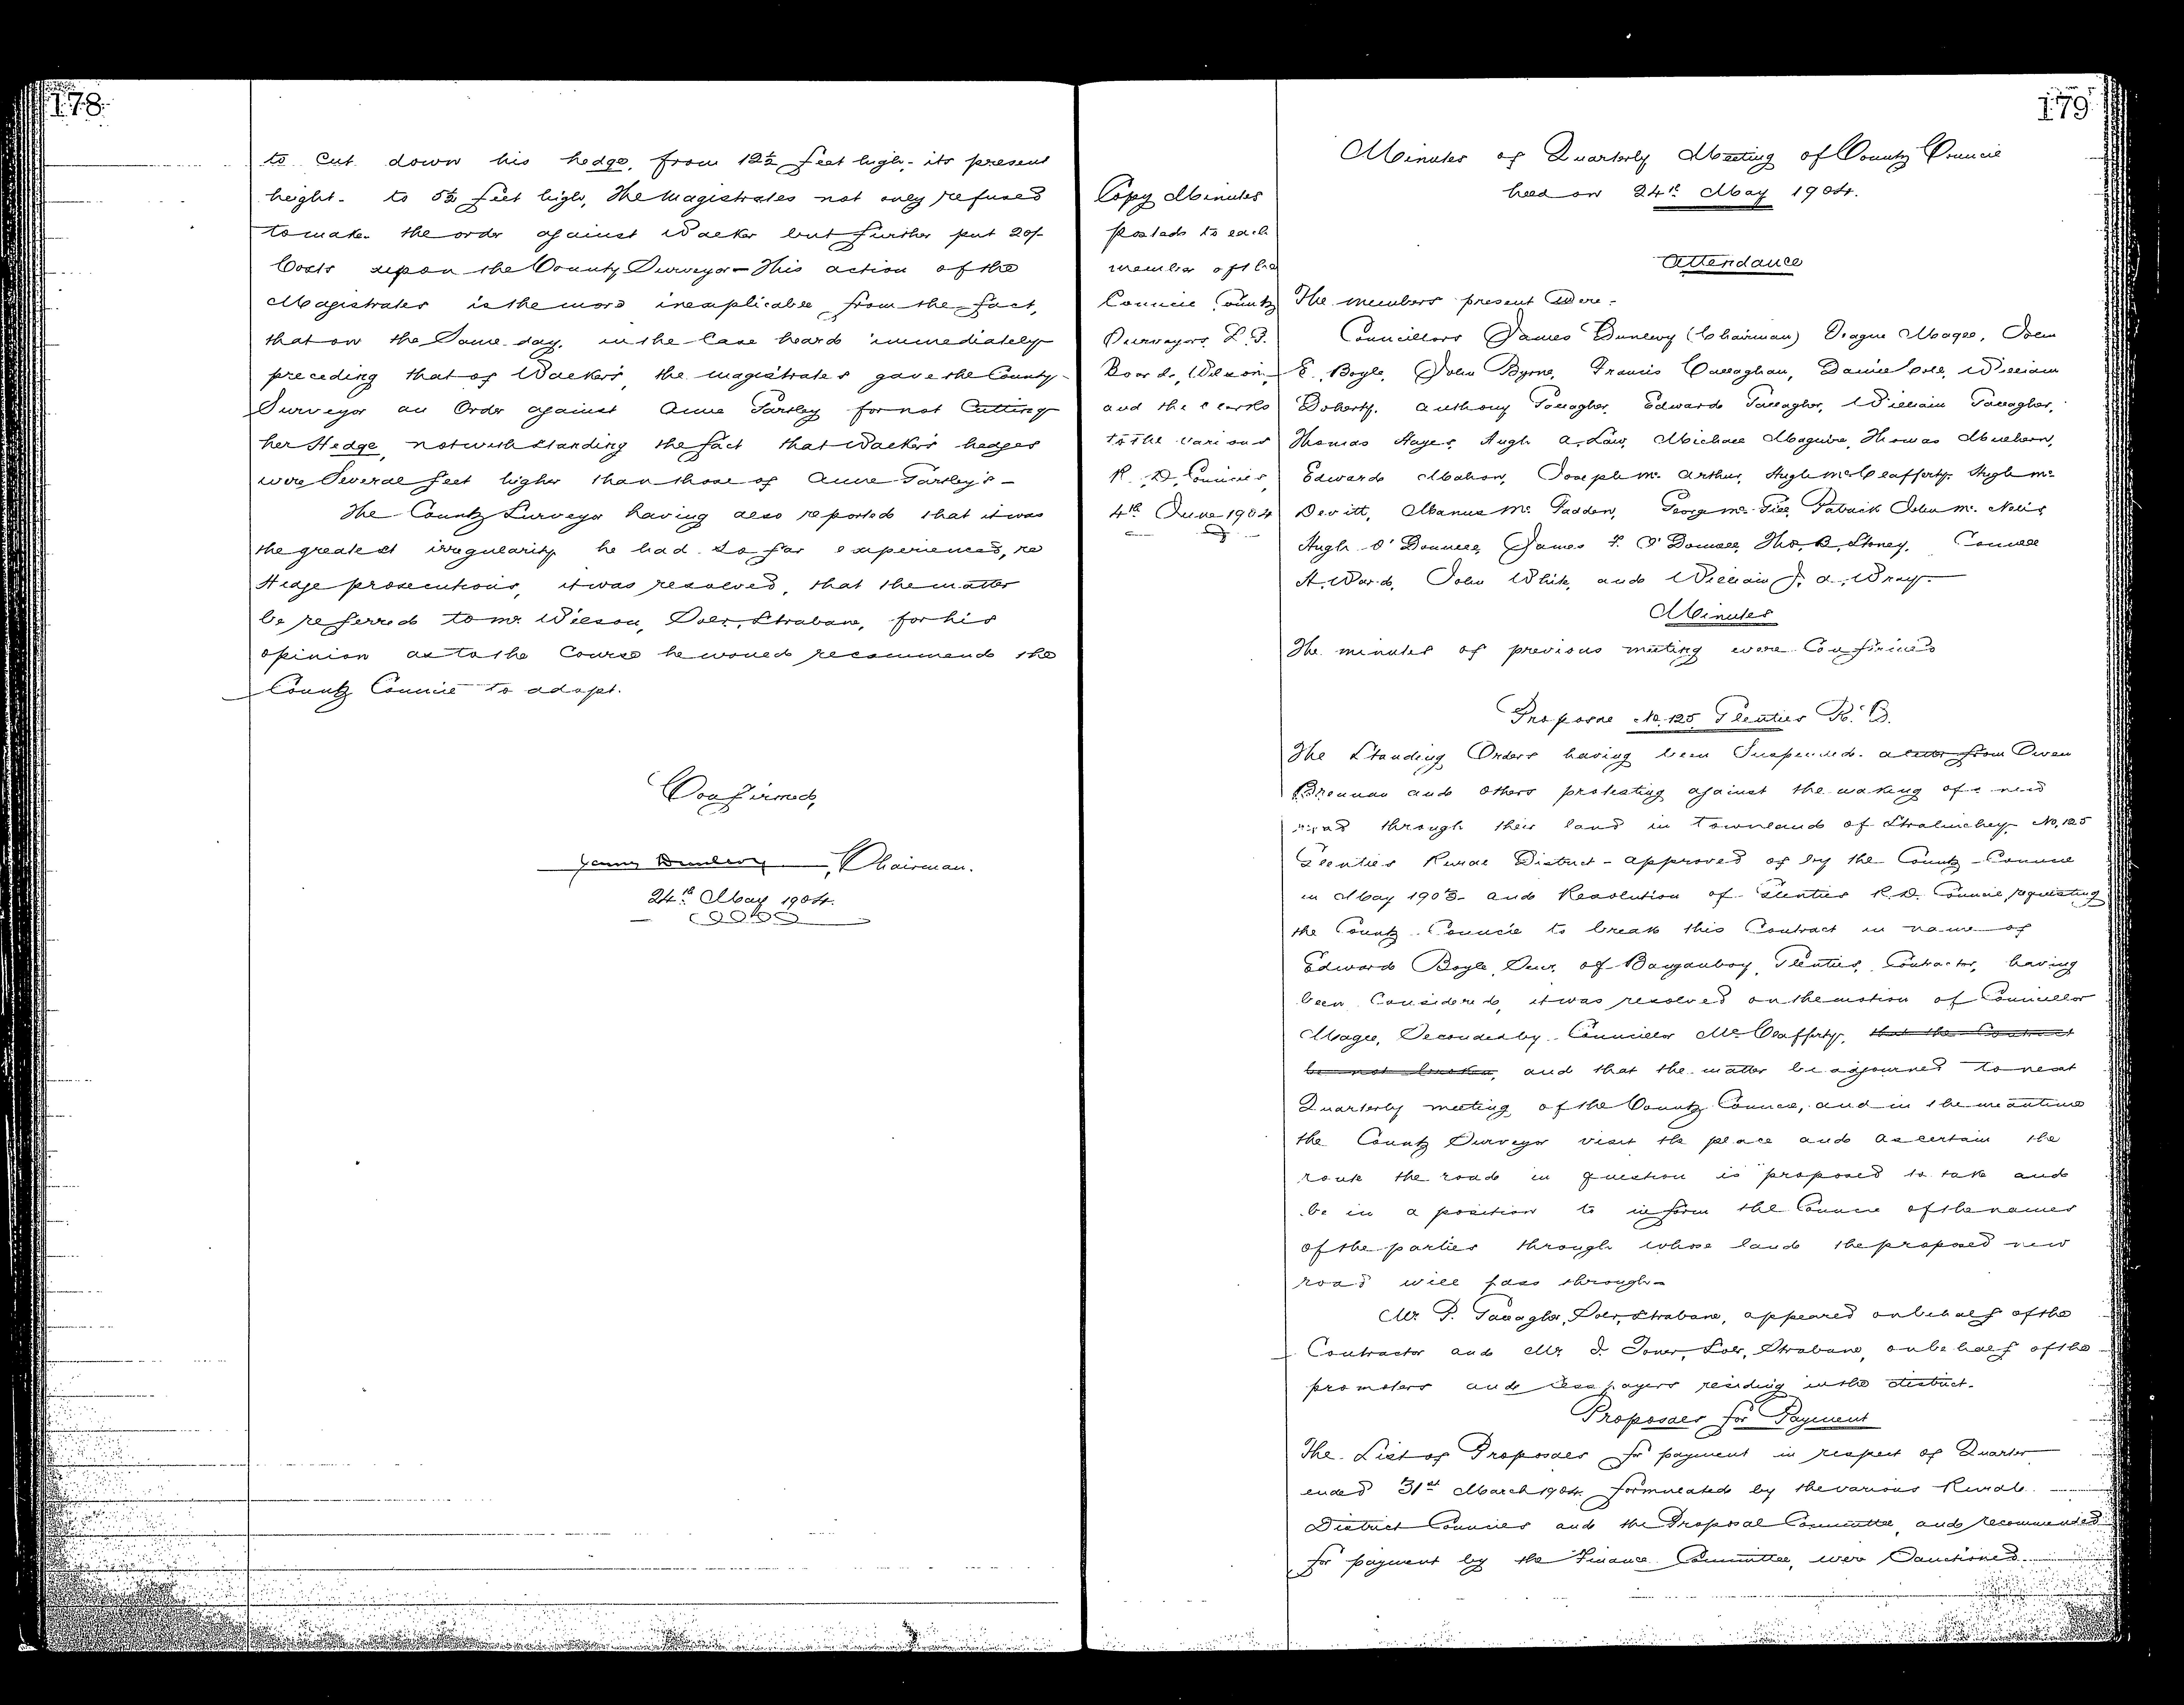 178
to cut down his hedge, from 12½ feet high - its present
height - to 5½ feet high, The Magistrates not only refused
to make the order against Walker but further put 20/-
Costs upon the County Surveyor - This action of the
Magistrates is the more inexplicable from the fact,
that on the Same day, in the Case heard immediately
preceding that of Walker's, the magistrates gave the County
Surveyor an Order against Anne Gartley for not Cutting
her Hedge, notwithstanding the fact that Walker's hedges
were Several feet higher than those of Anne Gartley's -
The County Surveyor having also reported that it was
the greatest irregularity he had so far experienced, re
Hedge prosecutions, it was resolved, that the matter
be referred to Mr. Wilson, Solr, Strabane, for his
opinion as to the Course he would recommend the
County Council to adopt.
Confirmed,
James Dunlevy, Chairman.
24th May 1904.
179
Copy Minutes
posted to each
member of the
Council County
Surveyors, L.G.
Board, Wilson,
and the clerks
to the various
R. D. Councils,
4th June 1904
Minutes of Quarterly Meeting of County Council
held on 24th May 1904.
Attendance
The members present were -
Councillors James Dunlevy (Chairman) Magee, John
E. Boyle, John Byrne, Francis Callaghan, Daniel Coll, William
Doherty, Anthony Gallagher, Edward Gallagher, William Gallagher,
Thomas Hayes, Hugh A. Law, Michael Maguire, Thomas Mulhern,
Edward Mahon, Joseph Mc Arthur, Hugh McCleafferty, Hugh Mc
Devitt, Manus Mc Fadden, George Mc Gill, Patrick John Mc Nelis,
Hugh O'Donnell, James F. O'Donnell, Thos. B. Stoney, Connell
H. Ward, John White, and William J. A. Wray -
Minutes
The minutes of previous meeting were Confirmed
Proposal No. 125 Glenties R. D.
The Standing Orders having been Suspended. a letter from Owen
Brennan and others protesting against the making of a new
road through their land in Townland of No. 125
Glenties Rural District - approved of by the County Council
in May 1903 - and Resolution of Glenties R. D. Council, requesting
the County Council to break this Contract in name of
Edward Boyle, Senr. of Glenties, Contractor, having
been Considered, it was resolved on the motion of Councillor
Magee, Seconded by Councillor McCleafferty, that the Contract
be not broken, and that the matter be adjourned to next
Quarterly meeting of the County Council, and in the meantime
the County Surveyor visit the place and ascertain the
route the road in question is proposed to take and
be in a position to inform the Council of the names
of the parties through whose lands the proposed new
road will pass through -
Mr. P. Gallagher, Solr, Strabane, appeared on behalf of the
Contractor and Mr. J. Toner, Solr, Strabane, on behalf of the
promoters and cesspayers residing in the district.
Proposals for Payment
The List of Proposals for payment in respect of Quarter
ended 31st March 1904, formulated by the various Rural
District Councils and the Proposal Committee, and recommended
for payment by the Finance Committee, were Sanctioned.